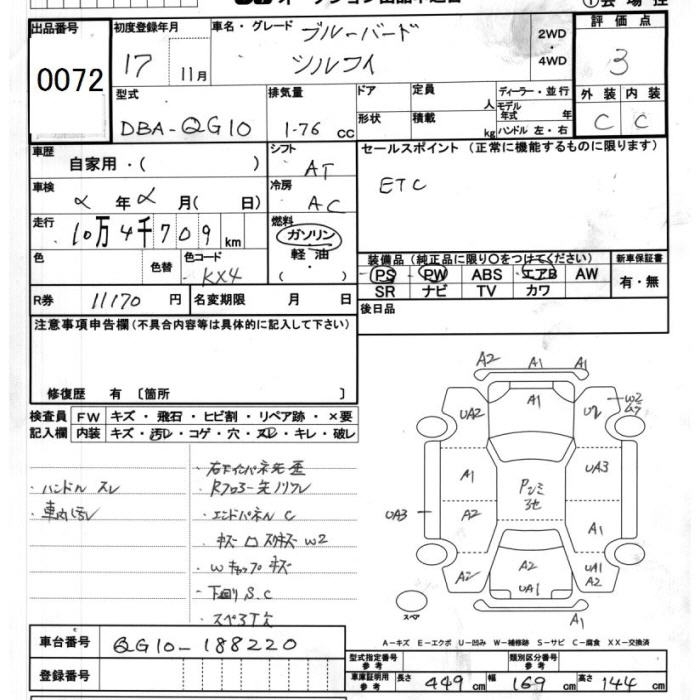 出品番号
0072
初度登録年月
17 11月
車名・グレード
ブルーバード
シルフィ
2WD
・
4WD
評価点
3
型式
DBA-QG10
排気量
1-76 cc
ドア
形状
定員 人
積載 kg
ディーラー・並行
モデル年式 年
ハンドル 左・右
外装 内装
C C
車歴
自家用・( )
シフト
AT
セールスポイント(正常に機能するものに限ります)
ETC
車検
年 月( 日)
冷房
AC
走行
10万4千709km
燃料
ガソリン
軽油
・( )
色
色替
色コード
KX4
装備品(純正品に限り○をつけてください)
PS PW ABS エアB AW
SR ナビ TV カワ
新車保証書
有・無
R券 11170 円
名変期限 月 日
後日品
注意事項申告欄(不具合内容等は具体的に記入して下さい)
修復歴 有 〔箇所 〕
検査員記入欄
FW キズ・飛石・ヒビ割・リペア跡・×要
内装 キズ・汚レ・コゲ・穴・スレ・キレ・破レ
・ハンドル スレ
・エンドパネル C
・下回り S.C
A2 A1 A1
UA2 A1 W2
A1 UA3
UA3 A2 A1
A2 A2 UA1 UA1 A2
A1
スペア
A-キズ E-エクボ U-凹み W-補修跡 S-サビ C-腐食 XX-交換済
車台番号
QG10-188220
登録番号
型式指定番号 参考
類別区分番号 参考
車庫証明用 参考
長さ 449 cm 幅 169 cm 高さ 144 cm